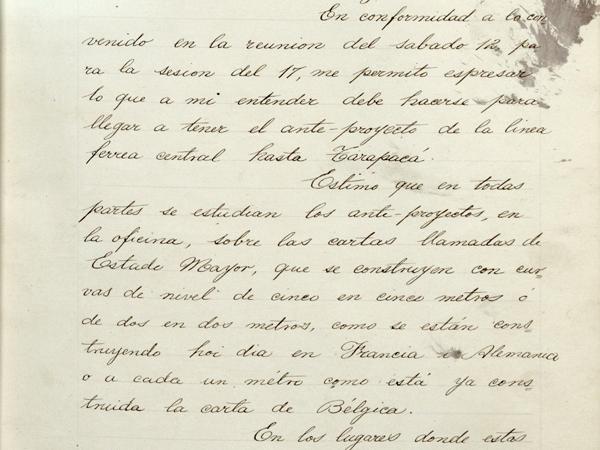 En conformidad a lo con
venido en la reunion del sabado 12 pa
ra la sesion del 17, me permito espresar
lo que a mi entender debe hacerse para
llegar a tener el ante-proyecto de la linea
ferrea central hasta Tarapacá.
Estimo que en todas
partes se estudian los ante-proyectos, en
la oficina, sobre las cartas llamadas de
Estado Mayor, que se construyen con cur=
vas de nivel de cinco en cinco metros ó
de dos en dos metros, como se están cons=
truyendo hoi dia en Francia i Alemania
o a cada un métro como está ya cons=
truida la carta de Bélgica.
En los lugares donde estas